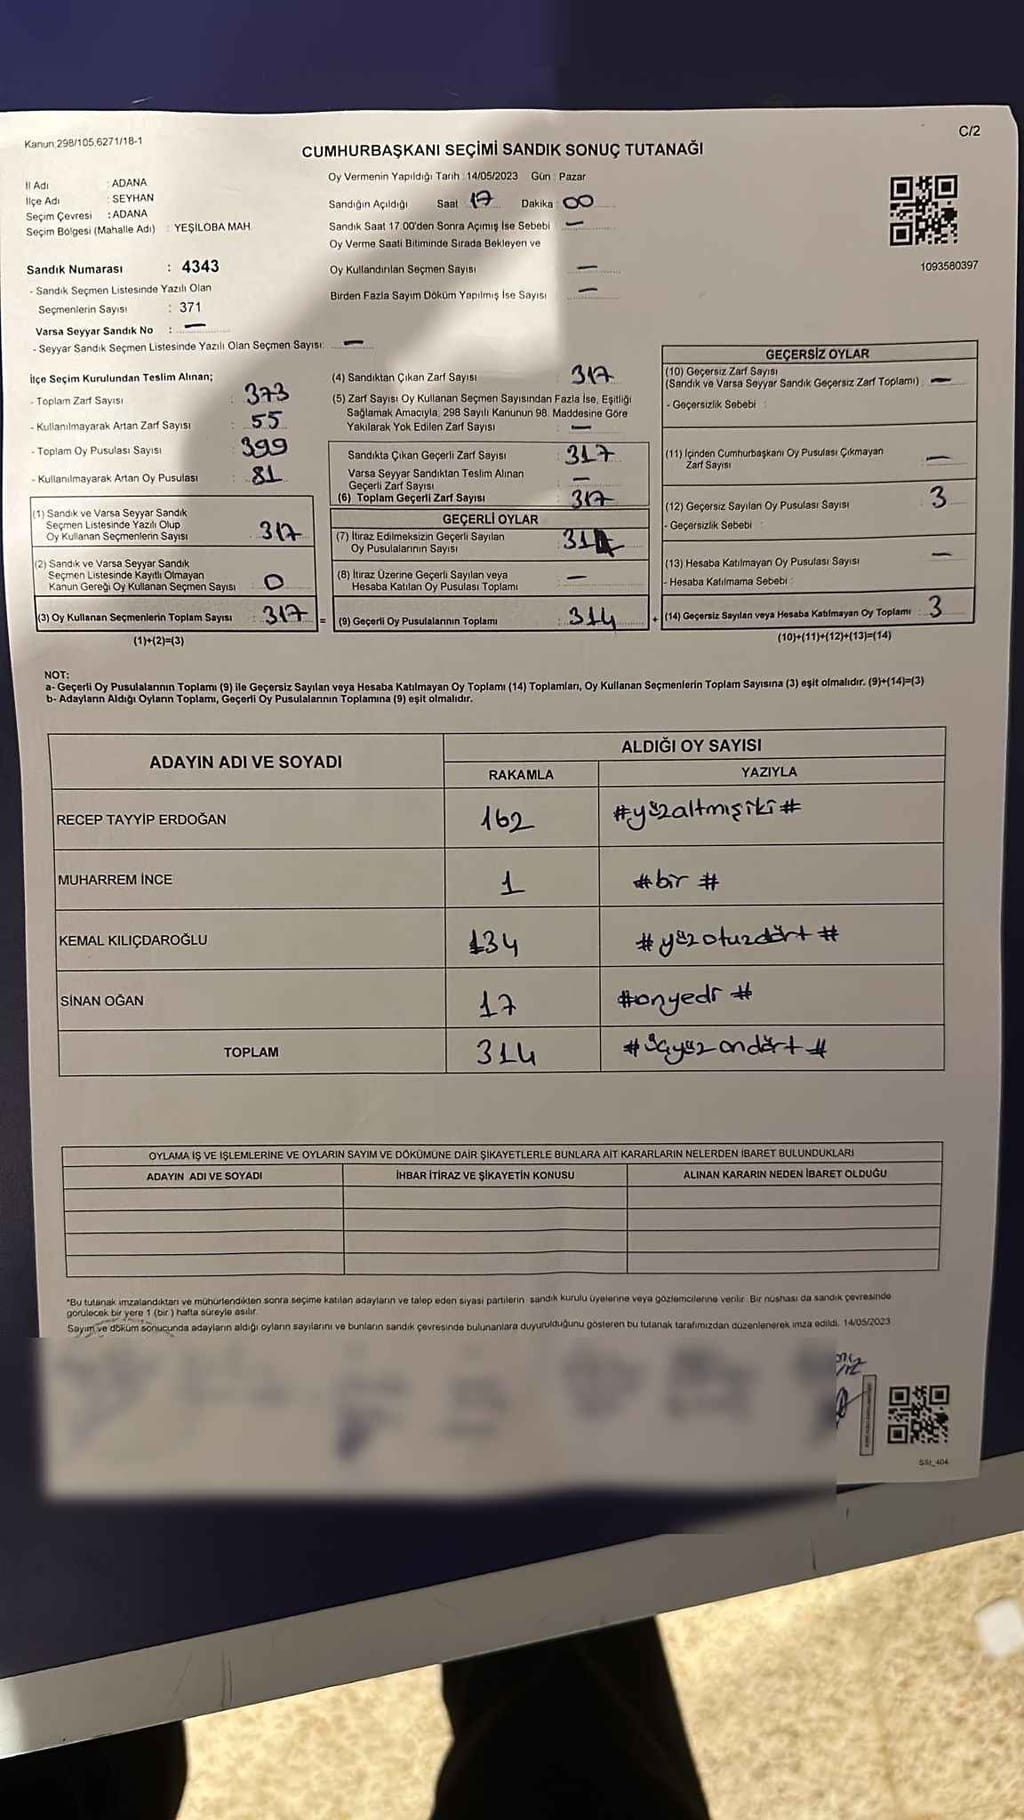 Kanun 298/105,6271/18-1
C/2
CUMHURBAŞKANI SEÇİMİ SANDIK SONUÇ TUTANAĞI
Oy Vermenin Yapıldığı Tarih : 14/05/2023 Gün : Pazar
İl Adı : ADANA
İlçe Adı : SEYHAN
Seçim Çevresi : ADANA
Seçim Bölgesi (Mahalle Adı) : YEŞİLOBA MAH.
Sandığın Açıldığı Saat 17 Dakika : 00
Sandık Saat 17.00'den Sonra Açımış İse Sebebi —
Oy Verme Saati Bitiminde Sırada Bekleyen ve
Oy Kullandırılan Seçmen Sayısı —
Birden Fazla Sayım Döküm Yapılmış İse Sayısı —
1093580397
Sandık Numarası : 4343
- Sandık Seçmen Listesinde Yazılı Olan
Seçmenlerin Sayısı : 371
Varsa Seyyar Sandık No : —
- Seyyar Sandık Seçmen Listesinde Yazılı Olan Seçmen Sayısı: —
İlçe Seçim Kurulundan Teslim Alınan;
- Toplam Zarf Sayısı : 373
- Kullanılmayarak Artan Zarf Sayısı : 55
- Toplam Oy Pusulası Sayısı : 399
- Kullanılmayarak Artan Oy Pusulası : 81
(1) Sandık ve Varsa Seyyar Sandık
Seçmen Listesinde Yazılı Olup
Oy Kullanan Seçmenlerin Sayısı : 317
(2) Sandık ve Varsa Seyyar Sandık
Seçmen Listesinde Kayıtlı Olmayan
Kanun Gereği Oy Kullanan Seçmen Sayısı : 0
(3) Oy Kullanan Seçmenlerin Toplam Sayısı : 317 =
(1)+(2)=(3)
(4) Sandıktan Çıkan Zarf Sayısı 317
(5) Zarf Sayısı Oy Kullanan Seçmen Sayısından Fazla İse, Eşitliği
Sağlamak Amacıyla, 298 Sayılı Kanunun 98. Maddesine Göre
Yakılarak Yok Edilen Zarf Sayısı —
Sandıkta Çıkan Geçerli Zarf Sayısı 317
Varsa Seyyar Sandıktan Teslim Alınan
Geçerli Zarf Sayısı —
(6) Toplam Geçerli Zarf Sayısı 317
GEÇERLİ OYLAR
(7) İtiraz Edilmeksizin Geçerli Sayılan
Oy Pusulalarının Sayısı 314
(8) İtiraz Üzerine Geçerli Sayılan veya
Hesaba Katılan Oy Pusulası Toplamı —
(9) Geçerli Oy Pusulalarının Toplamı : 314 +
GEÇERSİZ OYLAR
(10) Geçersiz Zarf Sayısı
(Sandık ve Varsa Seyyar Sandık Geçersiz Zarf Toplamı) : —
- Geçersizlik Sebebi :
(11) İçinden Cumhurbaşkanı Oy Pusulası Çıkmayan
Zarf Sayısı —
(12) Geçersiz Sayılan Oy Pusulası Sayısı 3
- Geçersizlik Sebebi :
(13) Hesaba Katılmayan Oy Pusulası Sayısı —
- Hesaba Katılmama Sebebi :
(14) Geçersiz Sayılan veya Hesaba Katılmayan Oy Toplamı : 3
(10)+(11)+(12)+(13)=(14)
NOT:
a- Geçerli Oy Pusulalarının Toplamı (9) ile Geçersiz Sayılan veya Hesaba Katılmayan Oy Toplamı (14) Toplamları, Oy Kullanan Seçmenlerin Toplam Sayısına (3) eşit olmalıdır. (9)+(14)=(3)
b- Adayların Aldığı Oyların Toplamı, Geçerli Oy Pusulalarının Toplamına (9) eşit olmalıdır.
ADAYIN ADI VE SOYADI ALDIĞI OY SAYISI
RAKAMLA YAZIYLA
RECEP TAYYİP ERDOĞAN 162 #yüzaltmışiki#
MUHARREM İNCE 1 #bir #
KEMAL KILIÇDAROĞLU 134 # yüzotuzdört #
SİNAN OĞAN 17 #onyedi #
TOPLAM 314 # üçyüzondört #
OYLAMA İŞ VE İŞLEMLERİNE VE OYLARIN SAYIM VE DÖKÜMÜNE DAİR ŞİKAYETLERLE BUNLARA AİT KARARLARIN NELERDEN İBARET BULUNDUKLARI
ADAYIN ADI VE SOYADI İHBAR İTİRAZ VE ŞİKAYETİN KONUSU ALINAN KARARIN NEDEN İBARET OLDUĞU
*Bu tutanak imzalandıktan ve mühürlendikten sonra seçime katılan adayların ve talep eden siyasi partilerin sandık kurulu üyelerine veya gözlemcilerine verilir. Bir nüshası da sandık çevresinde
görülecek bir yere 1 (bir) hafta süreyle asılır.
Sayım ve döküm sonucunda adayların aldığı oyların sayılarını ve bunların sandık çevresinde bulunanlara duyurulduğunu gösteren bu tutanak tarafımızdan düzenlenerek imza edildi. 14/05/2023
SSI_404